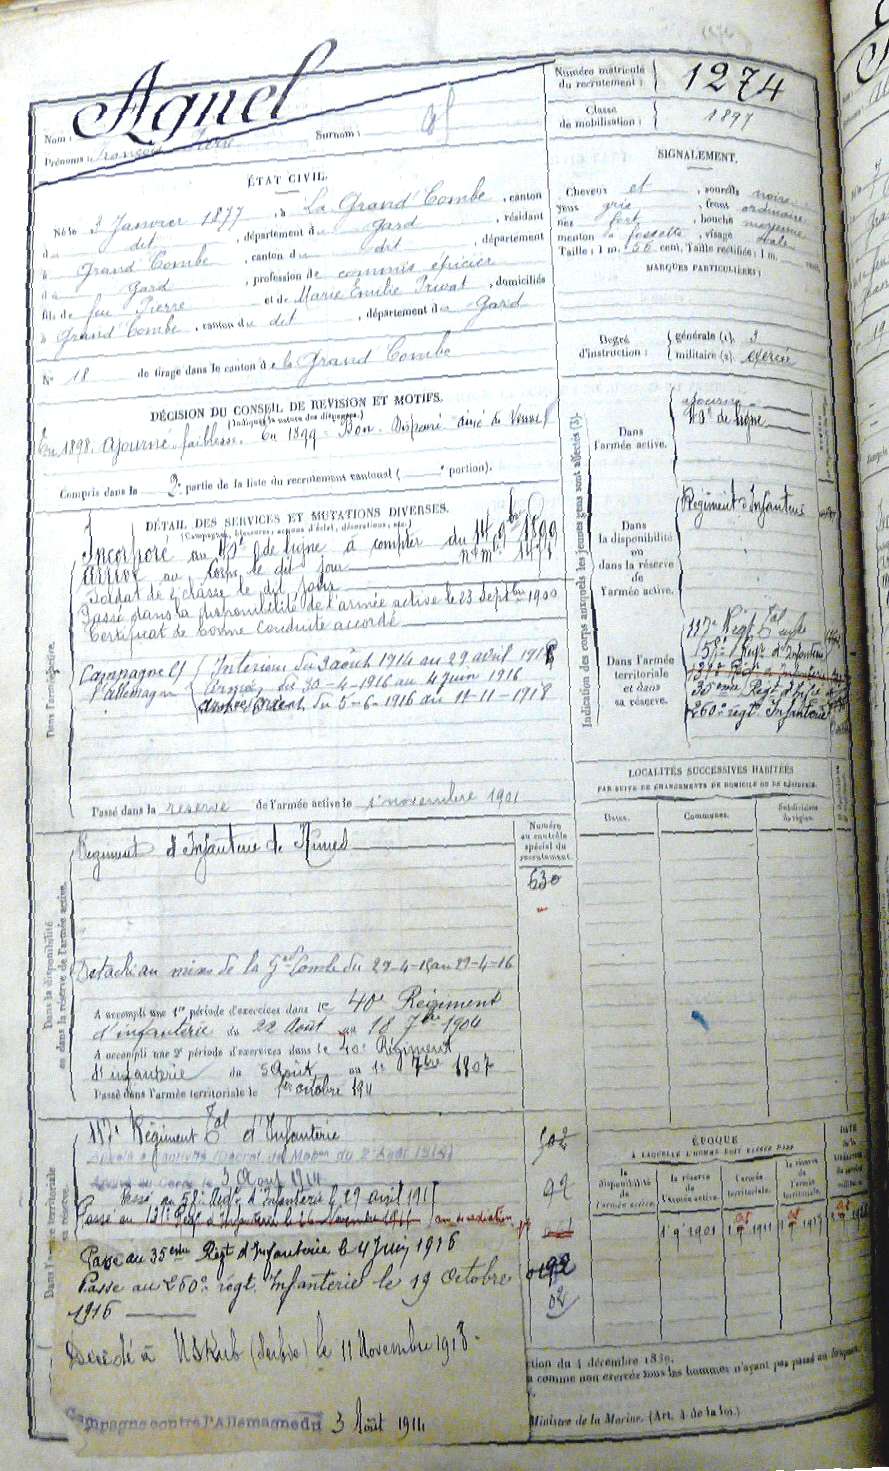 Agnel
Nom :
Prénoms : François Pierre Surnom :
Numéro matricule du recrutement : 1274
Classe de mobilisation : 1897
ÉTAT CIVIL.
Né le 3 Janvier 1877, à La Grand' Combe, canton
du dit, département du Gard, résidant
à Grand' Combe, canton du dit, département
du Gard, profession de commis épicier
fils de feu Pierre et de Marie Emilie Privat, domiciliés
à Grand' Combe, canton du dit, département du Gard
N° 18 de tirage dans le canton de la Grand' Combe
SIGNALEMENT.
Cheveux et, sourcils noirs
yeux gris, front ordinaire
nez fort, bouche moyenne
menton à fossette, visage ovale
Taille : 1 m. 56 cent. Taille rectifiée : 1 m. cent.
MARQUES PARTICULIÈRES :
Degré d'instruction : générale (1). 3
militaire (2). exercé
DÉCISION DU CONSEIL DE REVISION ET MOTIFS.
(Indiquer la nature des dispenses.)
En 1898. Ajourné faiblesse. En 1899 Bon. Dispensé aîné de veuve
Compris dans la 2e partie de la liste du recrutement cantonal ( e portion).
DÉTAIL DES SERVICES ET MUTATIONS DIVERSES.
(Campagnes, blessures, actions d'éclat, décorations, etc.)
Incorporé au de ligne à compter du 14 9bre 1899
Arrivé au Corps le dit jour n° mle
Soldat de 2e classe le dit jour
Passé dans la disponibilité de l'armée active le 23 Septbre 1900
Certificat de bonne conduite accordé
Campagne Cf l'Allemagne
Intérieur du 3 août 1914 au 29 avril 191
Armées du 30-4-1916 au 4 Juin 1916
Armée Orient du 5-6-1916 au 11-11-1918
Passé dans la réserve de l'armée active le 1er novembre 1901
Dans l'armée active.
Indication des corps auxquels les jeunes gens sont affectés (3).
Dans l'armée active.
ajourné
de ligne
Dans la disponibilité ou dans la réserve de l'armée active.
Régiment d'Infanterie
Dans l'armée territoriale et dans sa réserve.
117e Régt Tal
Régt d'Infanterie
35ème Régt d'Inf.ie
260e régt Infanterie
LOCALITÉS SUCCESSIVES HABITÉES
PAR SUITE DE CHANGEMENTS DE DOMICILE OU DE RÉSIDENCE.
Dates. Communes. Subdivisions de région.
Numéro au contrôle spécial du recrutement.
630
Dans la disponibilité ou dans la réserve de l'armée active.
Régiment d'Infanterie de Nîmes
Détaché aux mines de la Gd Combe du 29-4-15 au 29-4-16
A accompli une 1re période d'exercices dans le 40e Régiment
d'infanterie du 22 Août au 18 7bre 1904
A accompli une 2e période d'exercices dans le 40e Régiment
d'infanterie du 5 Août au 1er 7bre 1907
Passé dans l'armée territoriale le 1er octobre 1911
Dans l'armée territoriale et sa réserve.
117e Régiment Tal d'Infanterie
3 Août 1914
Passé au Régt d'Infanterie le 29 avril 191
Passé au 35ème Régt d'Infanterie le 4 Juin 1916
Passé au 260e régt Infanterie le 19 Octobre
1916
Décédé à Uskub (Serbie) le 11 Novembre 1918.
Campagne contre l'Allemagne du 3 Août 1914
ÉPOQUE
À LAQUELLE L'HOMME DOIT PASSER DANS
la disponibilité de l'armée active. la réserve de l'armée active. l'armée territoriale. la réserve de l'armée territoriale.
1 9 1901
tion du 4 décembre 1889.
comme non exercés tous les hommes n'ayant pas passé au
Ministre de la Marine. (Art. 4 de la loi.)